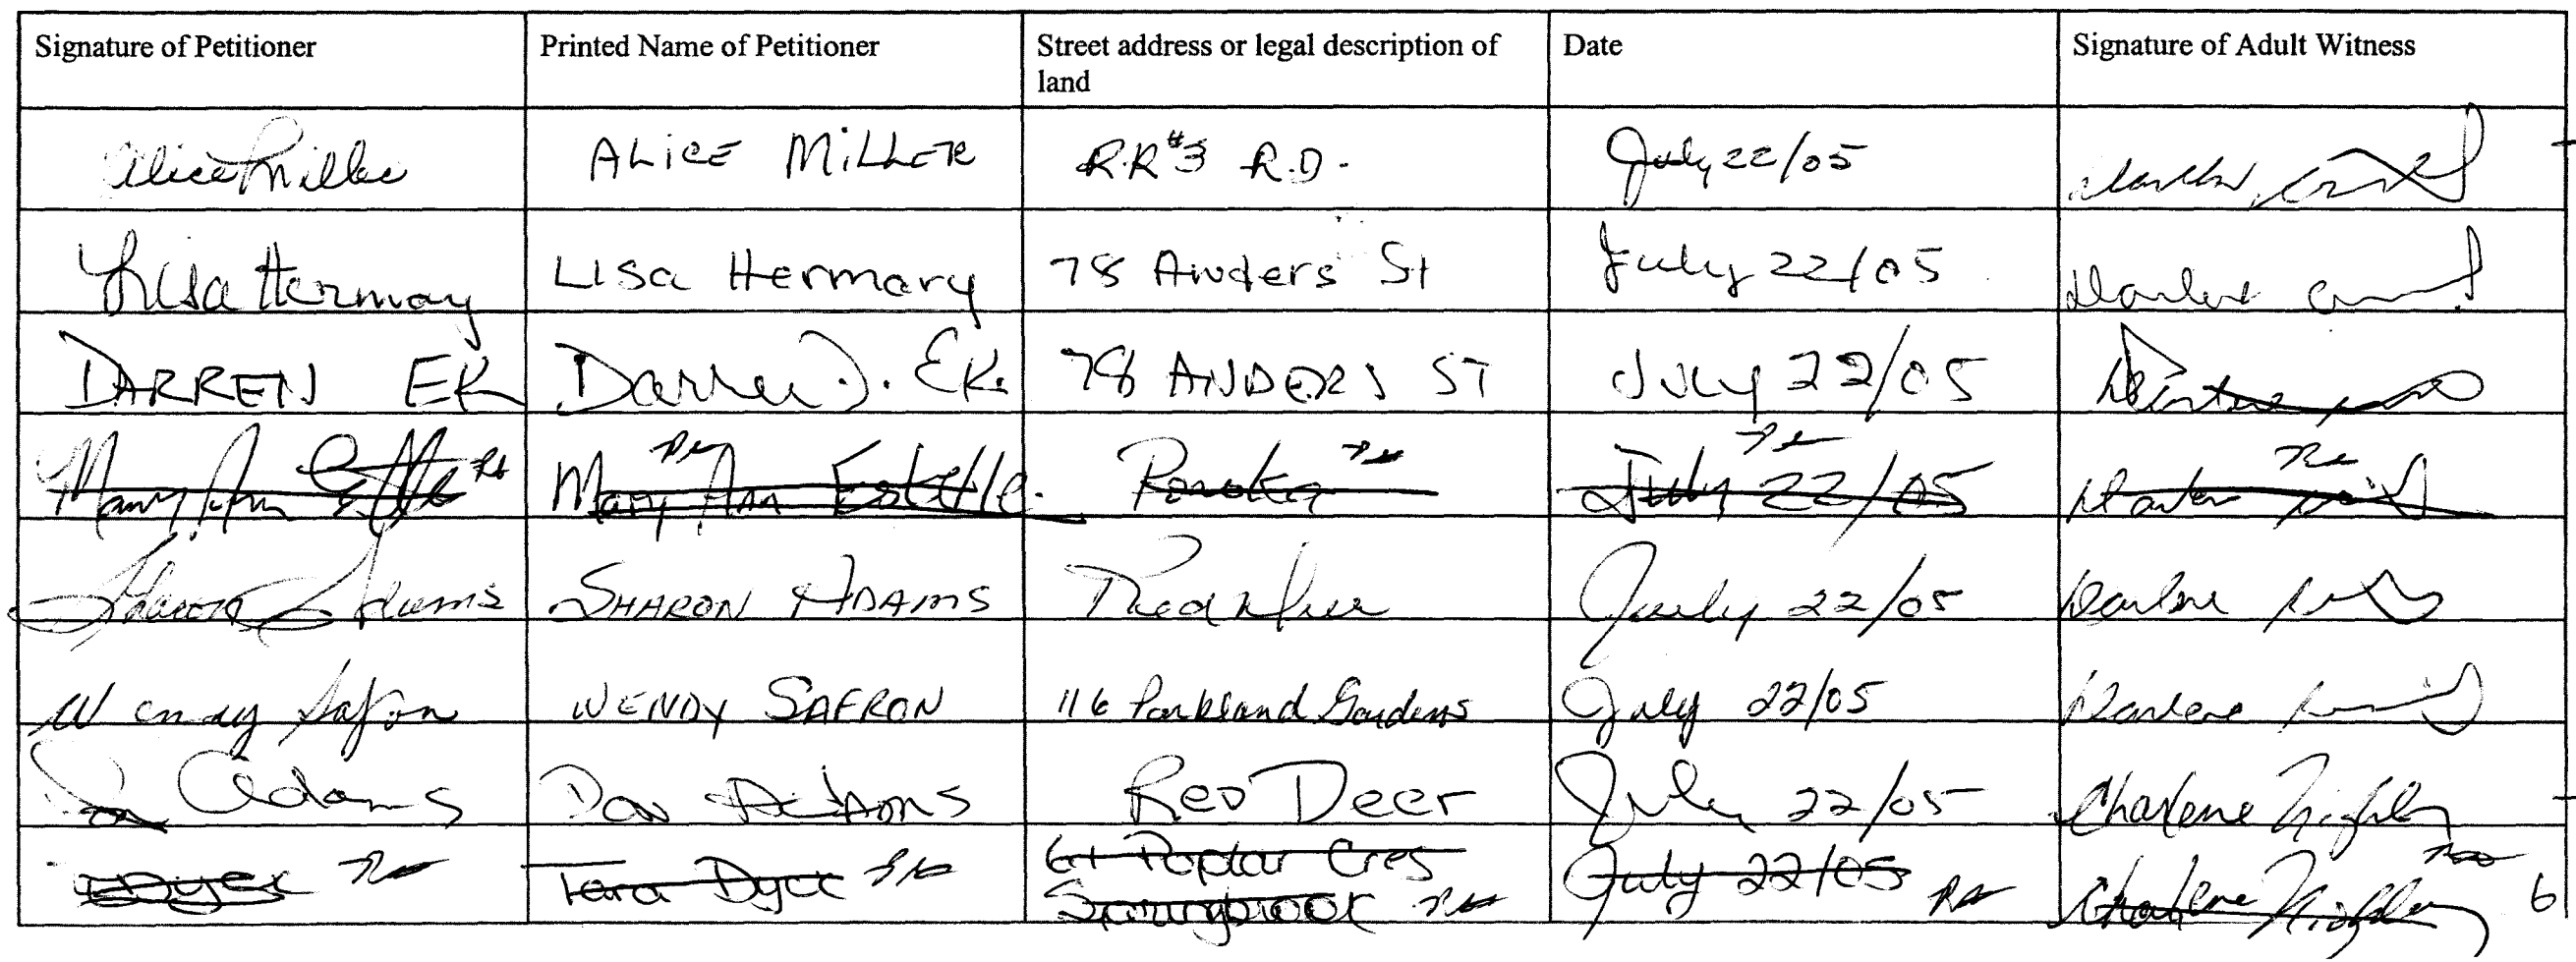 Signature of Petitioner Printed Name of Petitioner Street address or legal description of land Date Signature of Adult Witness
Alice Miller ALICE MILLER R.R #3 R.D. July 22/05 Darlene
Lisa Hermary Lisa Hermary 78 Anders St July 22/05 Darlene
DARREN EK Darren J. EK. 78 ANDERS ST July 22/05 Darlene
Mary Ann Estelle Mary Ann Estelle Ponoka July 22/05 Darlene
Sharon Adams SHARON ADAMS Red Deer July 22/05 Darlene
Wendy Safron WENDY SAFRON 116 Parkland Gardens July 22/05 Darlene
Don Adams Don Adams Red Deer July 22/05 Charlene
TDyck Tara Dyck 61 Poplar Cres July 22/05 Charlene
Springbrook
6